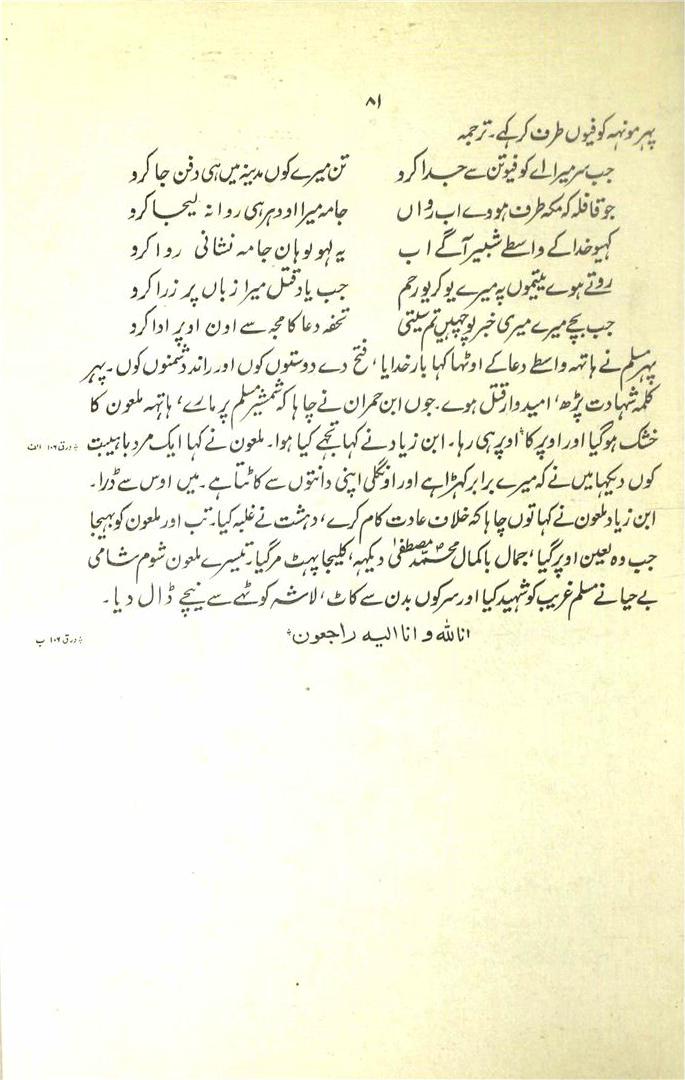 ۸۱
پہر مونہہ کوفیوں طرف کر کہے۔ ترجمہ
جب سر میرا اے کوفیو تن سے جدا کرو تن میرے کوں مدینہ میں ہی دفن جا کرو
جو قافلہ کہ مکہ طرف ہووے اب رواں جامہ میرا اودہر ہی روانہ لیجا کرو
کہیو خدا کے واسطے شبیر آگے اب یہ لہو لوہان جامہ نشانی روا کرو
روتے ہوے یتیموں پہ میرے یو کریو رحم جب یاد قتل میرا زباں پر زرا کرو
جب بچے میرے میری خبر پوچہیں تم سیتی تحفہ دعا کا مجہ سے اون اوپر ادا کرو
پہر مسلم نے ہاتہہ واسطے دعا کے اوٹہا کہا بار خدایا، فتح دے دوستوں کوں اور راند دشمنوں کوں۔ پہر
کلمہ شہادت پڑھ، امیدوار قتل ہوے۔ جوں ابن حمران نے چاہا کہ شمشیر مسلم پر مارے، ہاتہہ ملعون کا
خشک ہو گیا اور اوپر کا٭ اوپر ہی رہا۔ ابن زیاد نے کہا تجہے کیا ہوا۔ ملعون نے کہا ایک مرد با ہیبت
٭ ورق ۱۰۶ الف
کوں دیکہا میں نے کہ میرے برابر کہڑا ہے اور اونگلی اپنی دانتوں سے کاٹتا ہے۔ میں اوس سے ڈرا۔
ابن زیاد ملعون نے کہا توں چاہا کہ خلاف عادت کام کرے، دہشت نے غلبہ کیا۔ تب اور ملعون کو بہیجا
جب وہ لعین اوپر گیا، جمال با کمال محمد مصطفیٰ دیکہہ، کلیجا پہٹ مر گیا۔ تیسرے ملعون شوم شامی
بے حیا نے مسلم غریب کو شہید کیا اور سر کوں بدن سے کاٹ، لاشہ کوٹہے سے نیچے ڈال دیا۔
انا للہ و انا الیہ راجعون٭
٭ ورق ۱۰۶ ب